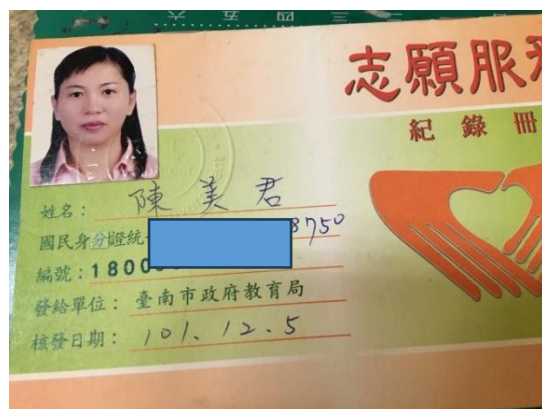 志願服
紀錄冊
姓名：陳美君
國民身分證統 8750
編號：1800
發給單位：臺南市政府教育局
核發日期：101.12.5